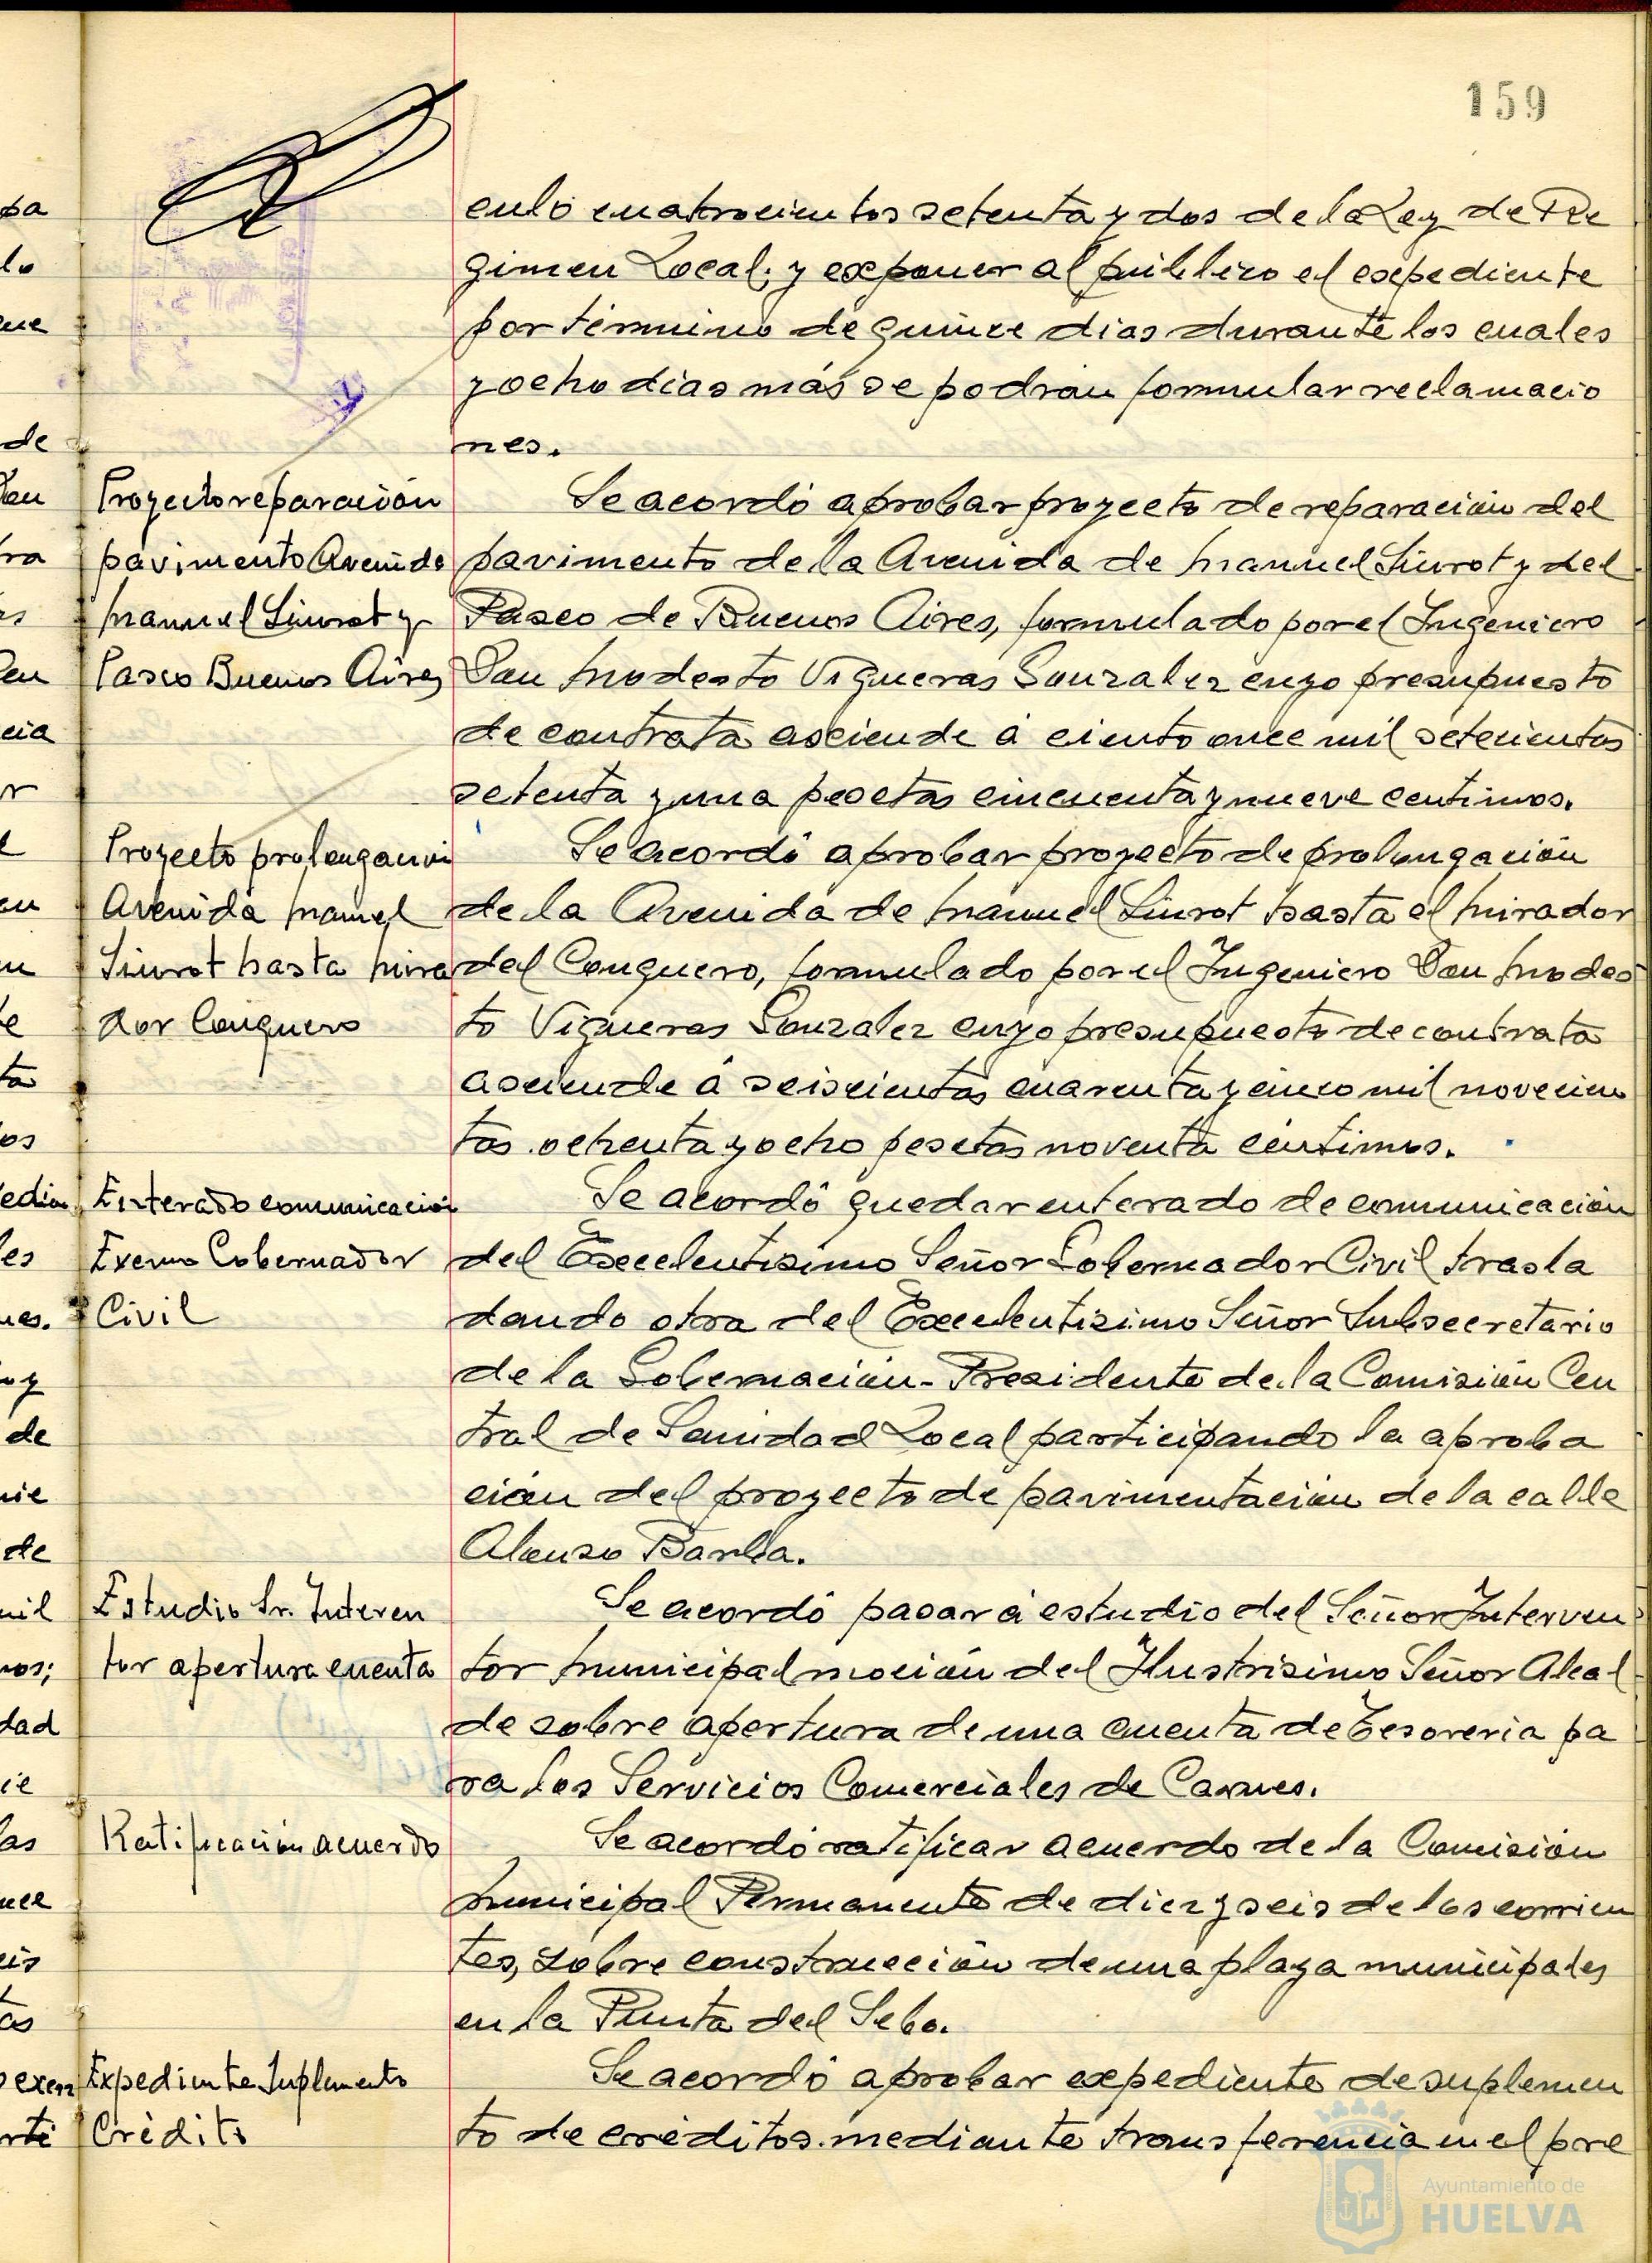 159
culo cuatrocientos setenta y dos de la Ley de Re
gimen Local; y exponer al público el expediente
por término de quince dias durante los cuales
y ocho dias más se podrán formular reclamacio
nes.
Proyecto reparación
pavimento Avenida
Manuel Siurot y
Paseo Buenos Aires
Se acordó aprobar proyecto de reparación del
pavimento de la Avenida de Manuel Siurot y del
Paseo de Buenos Aires, formulado por el Ingeniero
Don Modesto Vigueras Gonzalez cuyo presupuesto
de contrata asciende á ciento once mil setecientas
setenta y una pesetas cincuenta y nueve centimos.
Proyecto prolongación
Avenida Manuel
Siurot hasta Mira
dor Conquero
Se acordó aprobar proyecto de prolongación
de la Avenida de Manuel Siurot hasta el Mirador
del Conquero, formulado por el Ingeniero Don Modes
to Vigueras Gonzalez cuyo presupuesto de contrata
asciende á seiscientas cuarenta y cinco mil novecien
tas ochenta y ocho pesetas noventa céntimos.
Enterado comunicación
Exemo Gobernador
Civil
Se acordó quedar enterado de comunicación
del Excelentisimo Señor Gobernador Civil trasla
dando otra del Excelentisimo Señor Subsecretario
de la Gobernación-Presidente de la Comisión Cen
tral de Sanidad Local participando la aproba
ción del proyecto de pavimentación de la calle
Alonso Barba.
Estudio Sr. Interven
tor apertura cuenta
Se acordó pasar á estudio del Señor Interven
tor Municipal moción del Ilustrisimo Señor Alcal
de sobre apertura de una cuenta de Tesoreria pa
ra los Servicios Comerciales de Carnes.
Ratificación acuerdo
Se acordó ratificar acuerdo de la Comisión
Municipal Permanente de diez y seis de los corrien
tes, sobre construcción de una playa municipales
en la Punta del Sebo.
Expediente Suplemento
Crédito
Se acordó aprobar expediente de suplemen
to de créditos mediante transferencia en el pre
Ayuntamiento de
HUELVA